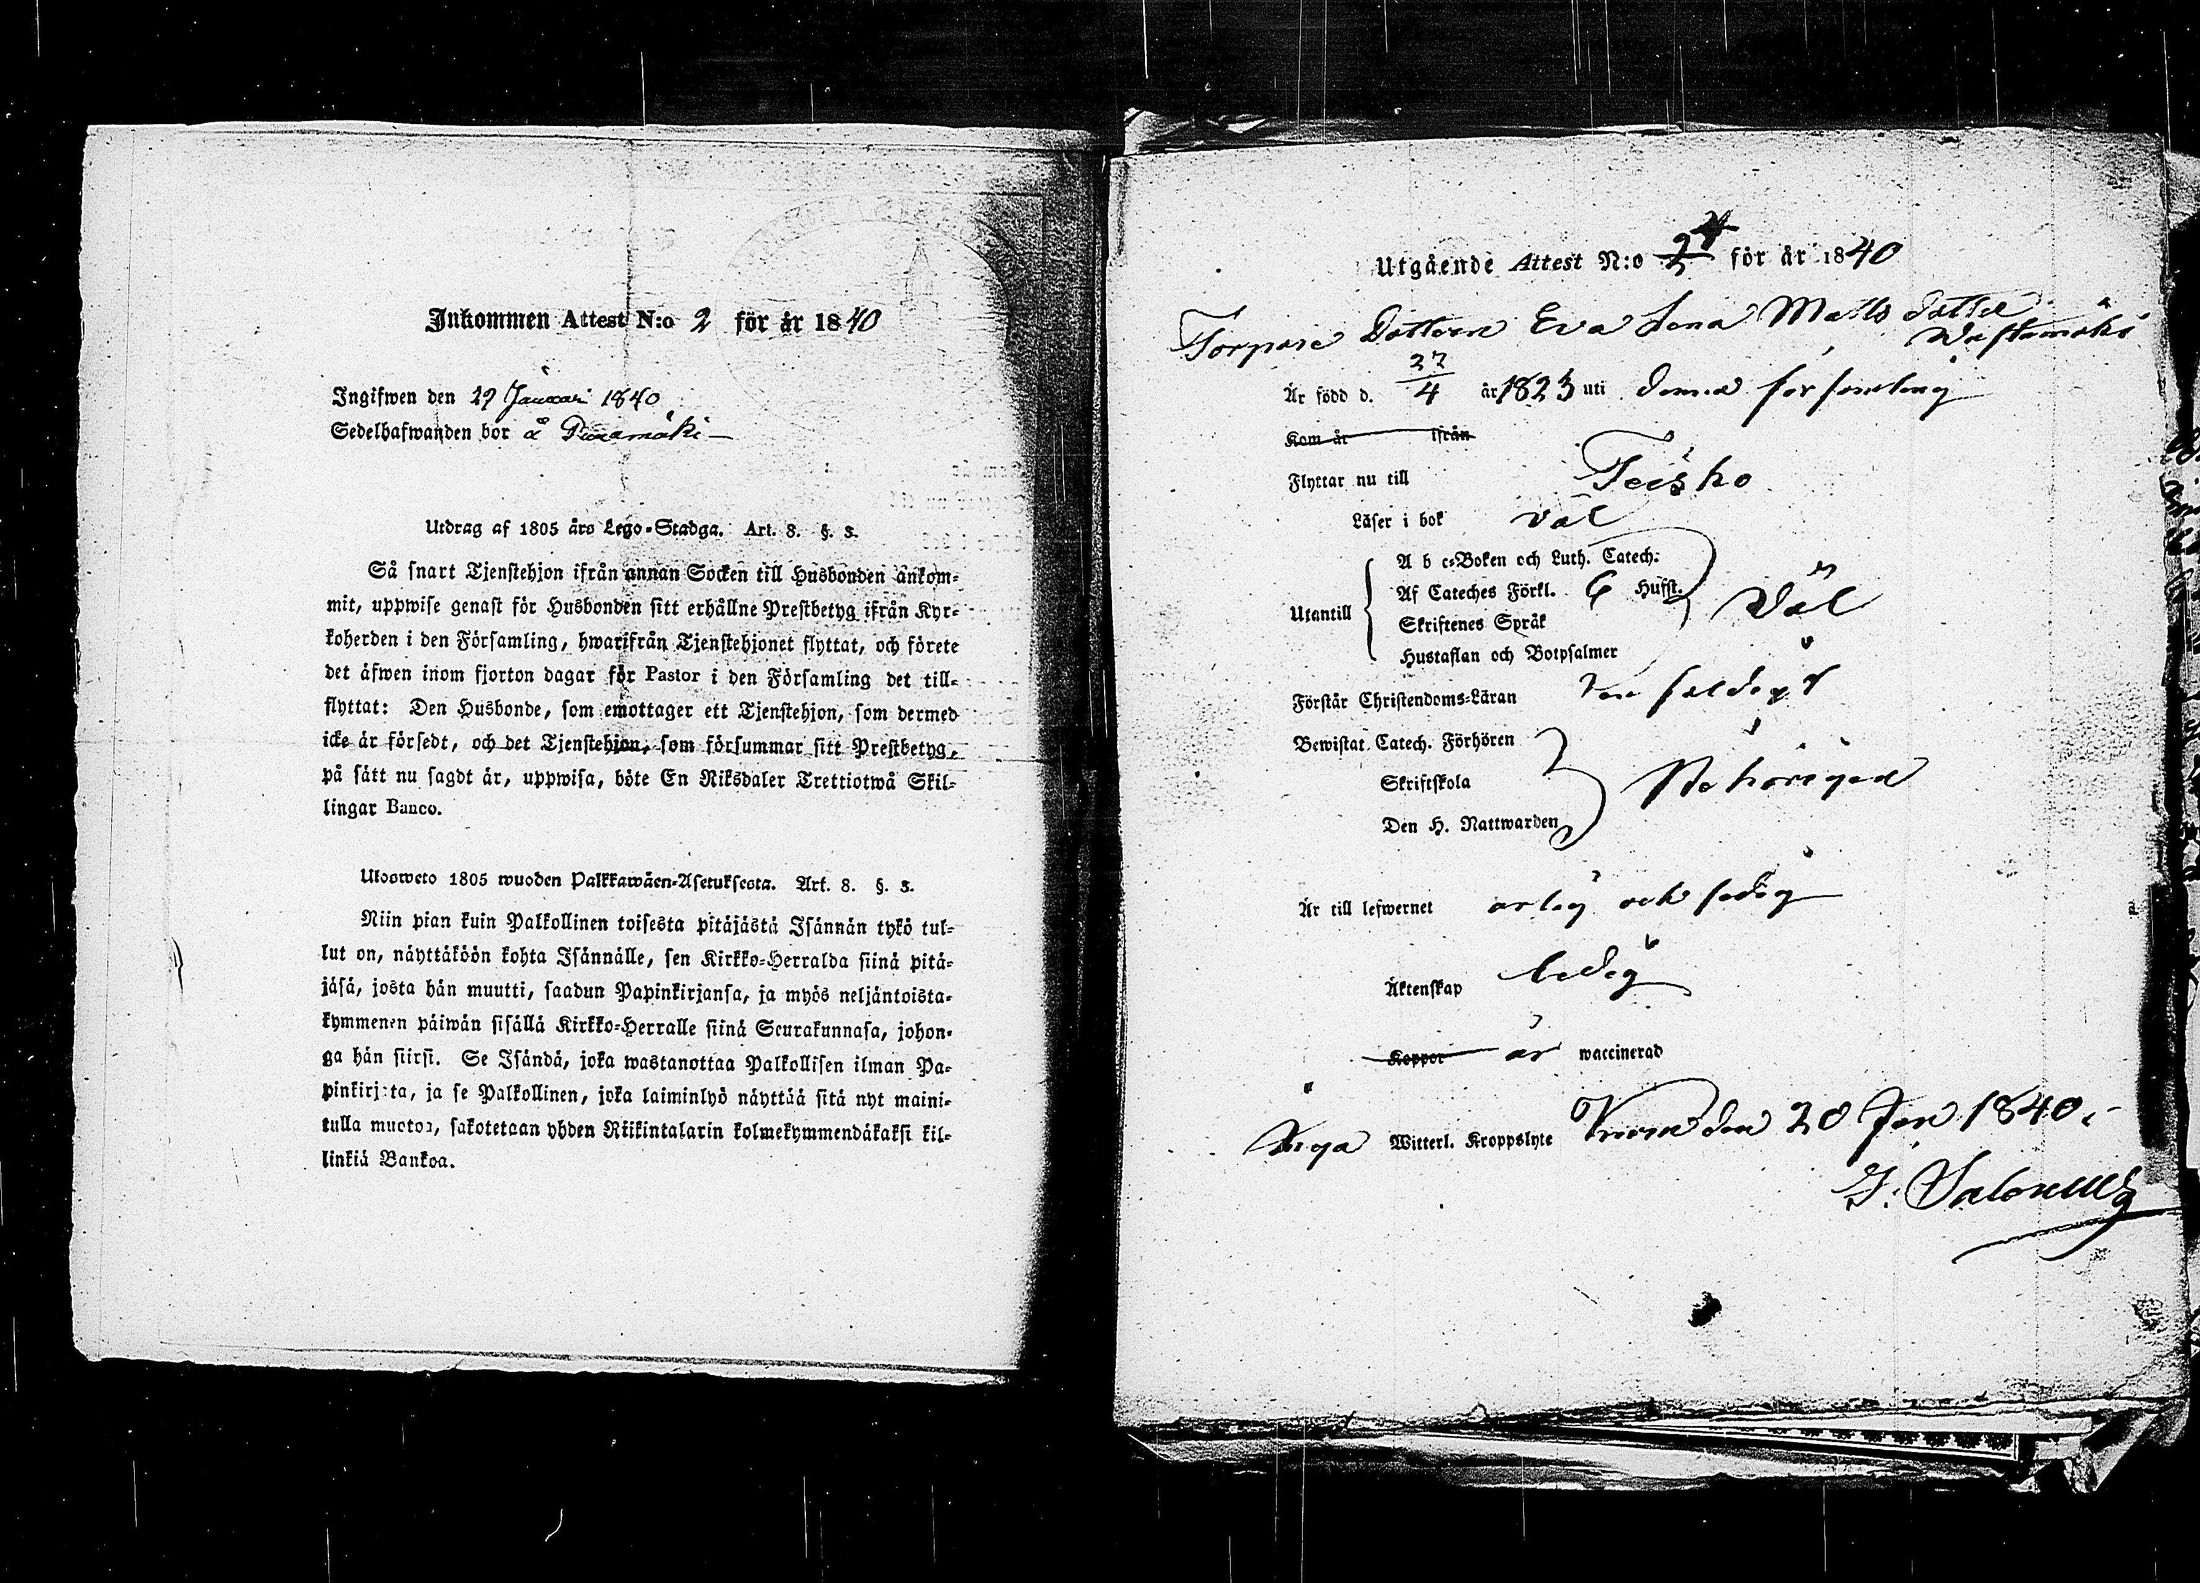 Inkommen Attest N:o 2 för år 1840
Ingifwen den 29 Januari 1840
Sedelhafwanden bor å
Utdrag af 1805 års Lego-Stadga. Art. 8. §. 3.
Så snart Tjenstehjon ifrån annan Socken till Husbonden ankom-
mit, uppwise genast för Husbonden sitt erhållne Prestbetyg ifrån Kyr-
koherden i den Församling, hwarifrån Tjenstehjonet flyttat, och förete
det äfwen inom fjorton dagar för Pastor i den Församling det till-
flyttat: Den Husbonde, som emottager ett Tjenstehjon, som dermed
icke är försedt, och det Tjenstehjon, som försummar sitt Prestbetyg,
på sätt nu sagdt är, uppwisa, böte En Riksdaler Trettiotwå Skil-
lingar Banco.
Uloswеto 1805 wuoden Palkkawäen-Asetuksesta. Art. 8. §. 3.
Niin pian kuin Palkollinen toisesta pitäjästä Isännän tykö tul-
lut on, näyttäköön kohta Isännälle, sen Kirkko-Herralda siinä pitä-
jäsä, josta hän muutti, saadun Papinkirjansa, ja myös neljäntoista-
kymmenen päiwän sisällä Kirkko-Herralle siinä Seurakunnasa, johon-
ga hän siirsi. Se Isändä, joka wastanottaa Palkollisen ilman Pa-
pinkirjata, ja se Palkollinen, joka laiminlyö näyttää sitä nyt maini-
tulla muotoa, sakotetaan yhden Riikintalarin kolmekymmendäkaksi kil-
linkiä Bankoa.
Utgående Attest N:o för år 1840
Torpare Dottern Eva Lena Matts dotter
Är född d. 27/4 år 1823 uti denna församling
Kom år ifrån
Flyttar nu till Teisko
Läser i bok väl
Utantill
A b c-Boken och Luth. Catech.
Af Cateches Förkl. 6 Hufst.
Skriftenes Språk
Hustaflan och Botpsalmer
Väl
Förstår Christendoms-Läran enfaldigt
Bewistat Catech. Förhören
Skriftskola
Den H. Nattwarden
Behörigen
Är till lefwernet ärlig och sedig
Äktenskap ledig
Koppor är waccinerad
Inga Witterl. Kroppslyte den 20 Jan 1840.